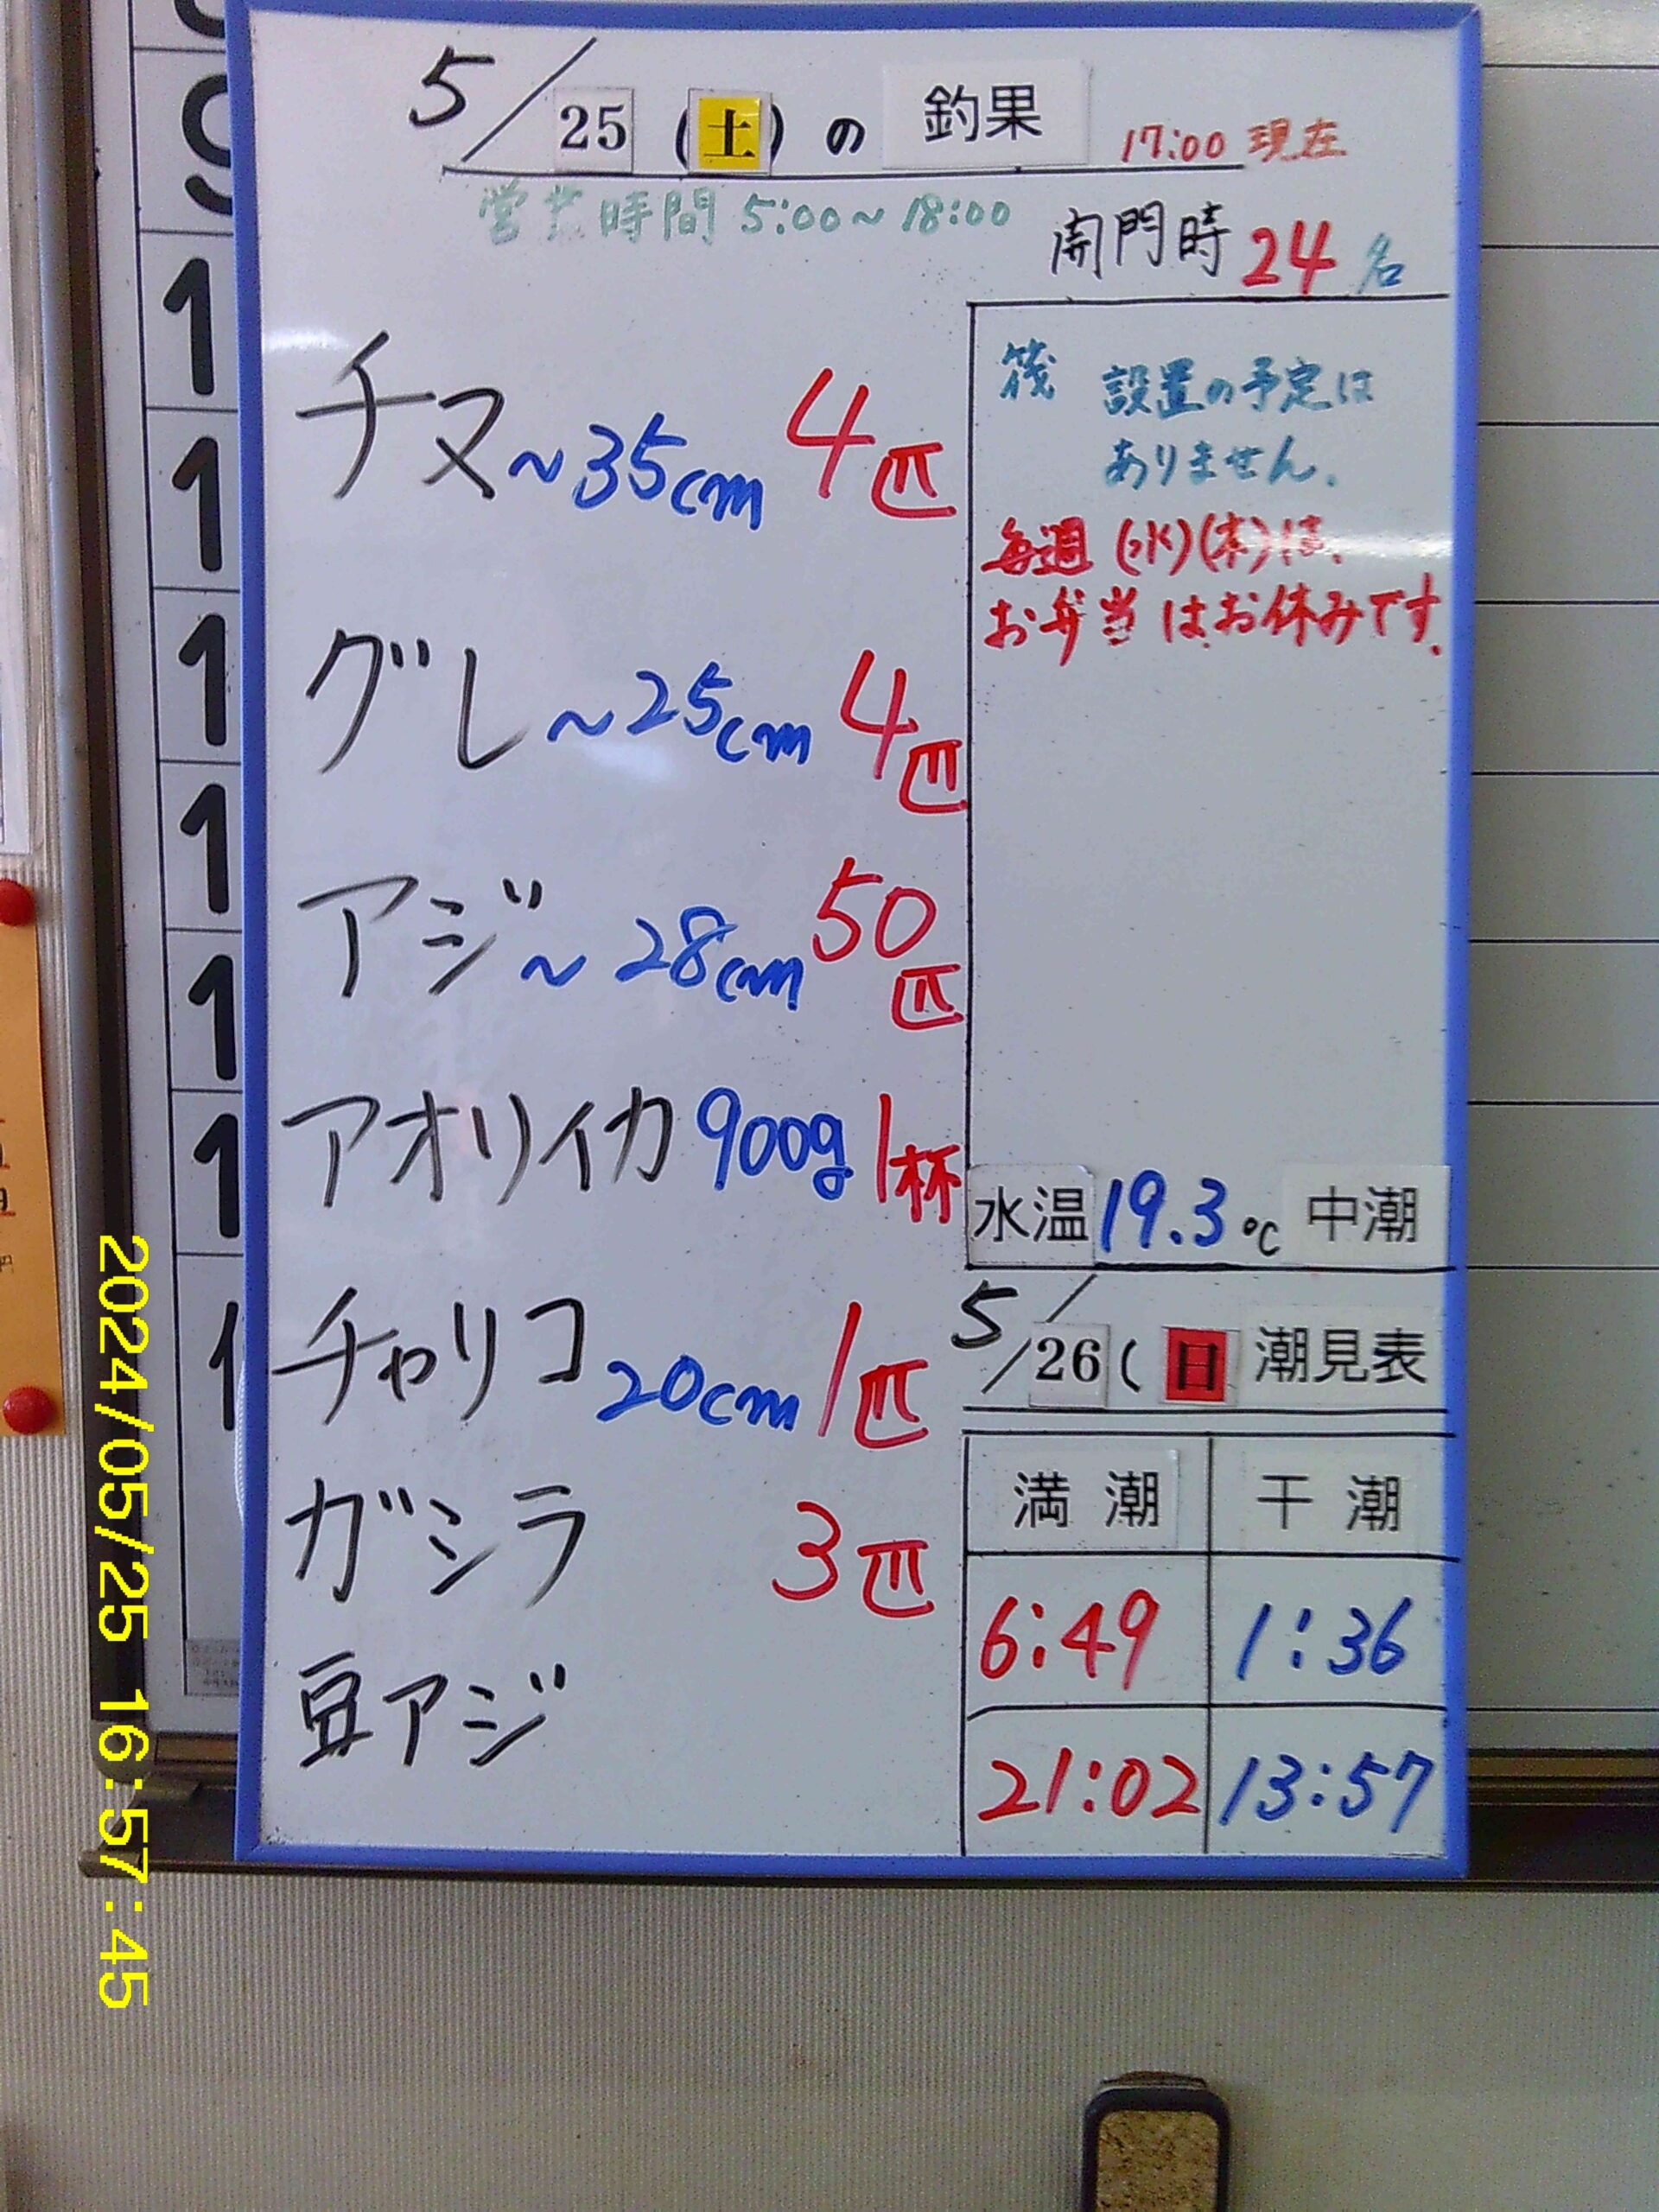 5/25(土)の 釣果 17:00 現在
営業時間 5:00～18:00
開門時 24名
チヌ～35cm 4匹
グレ～25cm 4匹
アジ～28cm 50匹
アオリイカ 900g 1杯
チャリコ 20cm 1匹
ガシラ 3匹
豆アジ
筏 設置の予定は
ありません.
毎週(水)(木)は、
お弁当はお休みです.
水温 19.3℃ 中潮
5/26(日 潮見表
満潮 干潮
6:49 1:36
21:02 13:57
2024/05/25 16:57:45